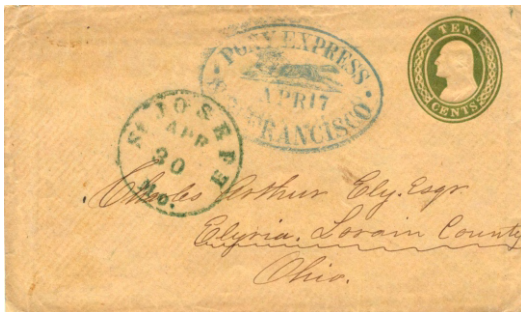 PONY EXPRESS
APR 17
SAN FRANCISCO
TEN
CENTS
ST JOSEPH
APR
30
Mo.
Charles Arthur Ely. Esqr
Elyria. Lorain County
Ohio.